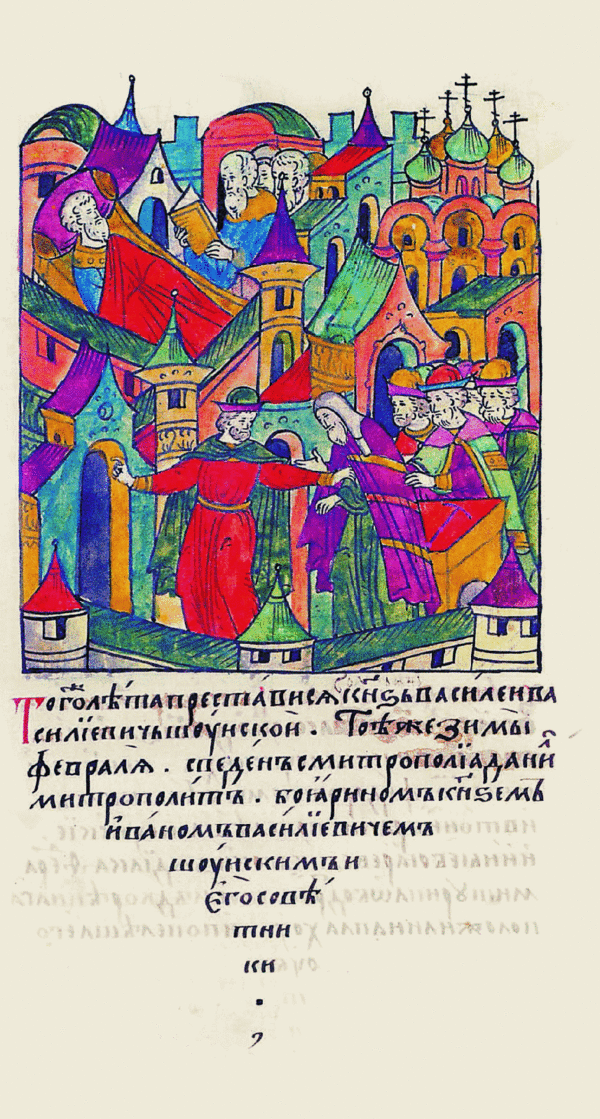 Того̑ лѣ́та преста́вися кн҃ѕь васи́леи ва
си́лїевичь шоу́искои . То́ѣ же зи́мы
феврал́я . сведе́нъ с митропо́лїа дании̑
митрополи́тъ . боя́риномъ кн҃ѕемъ
ива́номъ васи́лїевичемъ
шоу́искимъ и
є҆го̀ совѣ́
тни
ки
.